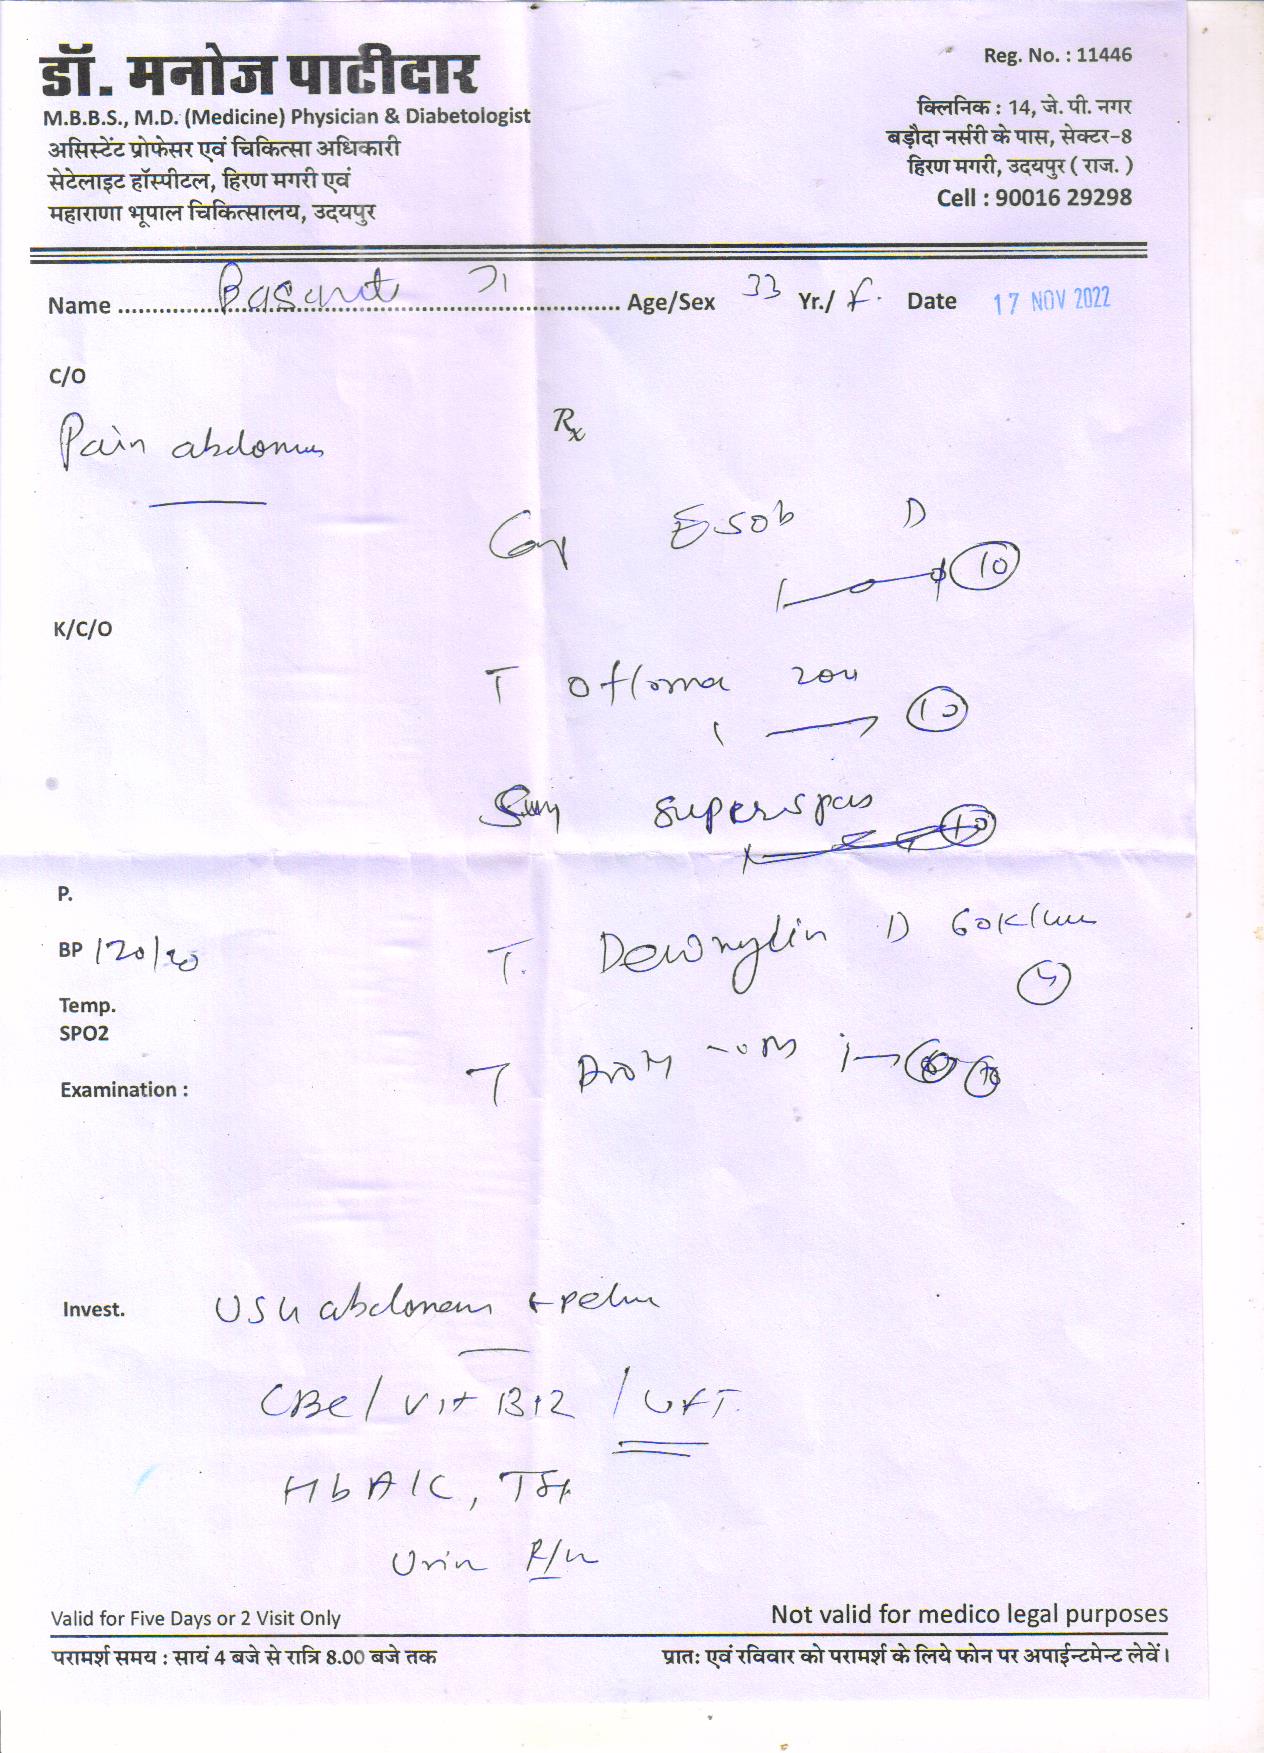 डॉ. मनोज पाटीदार
M.B.B.S., M.D. (Medicine) Physician & Diabetologist
असिस्टेंट प्रोफेसर एवं चिकित्सा अधिकारी
सेटेलाइट हॉस्पीटल, हिरण मगरी एवं
महाराणा भूपाल चिकित्सालय, उदयपुर
Reg. No. : 11446
क्लिनिक : 14, जे. पी. नगर
बड़ौदा नर्सरी के पास, सेक्टर-8
हिरण मगरी, उदयपुर ( राज. )
Cell : 90016 29298
Name Basant Age/Sex 33 Yr./ f. Date 17 NOV 2022
C/O
Pain abdomen
Rx
Cap Esob D
10
K/C/O
T Ofloma 200
10
superspas
10
P.
BP 120/
T. D 60K
Temp.
SPO2
T
Examination :
Invest. USG abdomen + pelvis
CBC / Vit B12 /
HbA1C, TSH
Urin R/
Valid for Five Days or 2 Visit Only
Not valid for medico legal purposes
परामर्श समय : सायं 4 बजे से रात्रि 8.00 बजे तक
प्रातः एवं रविवार को परामर्श के लिये फोन पर अपाईन्टमेन्ट लेवें।